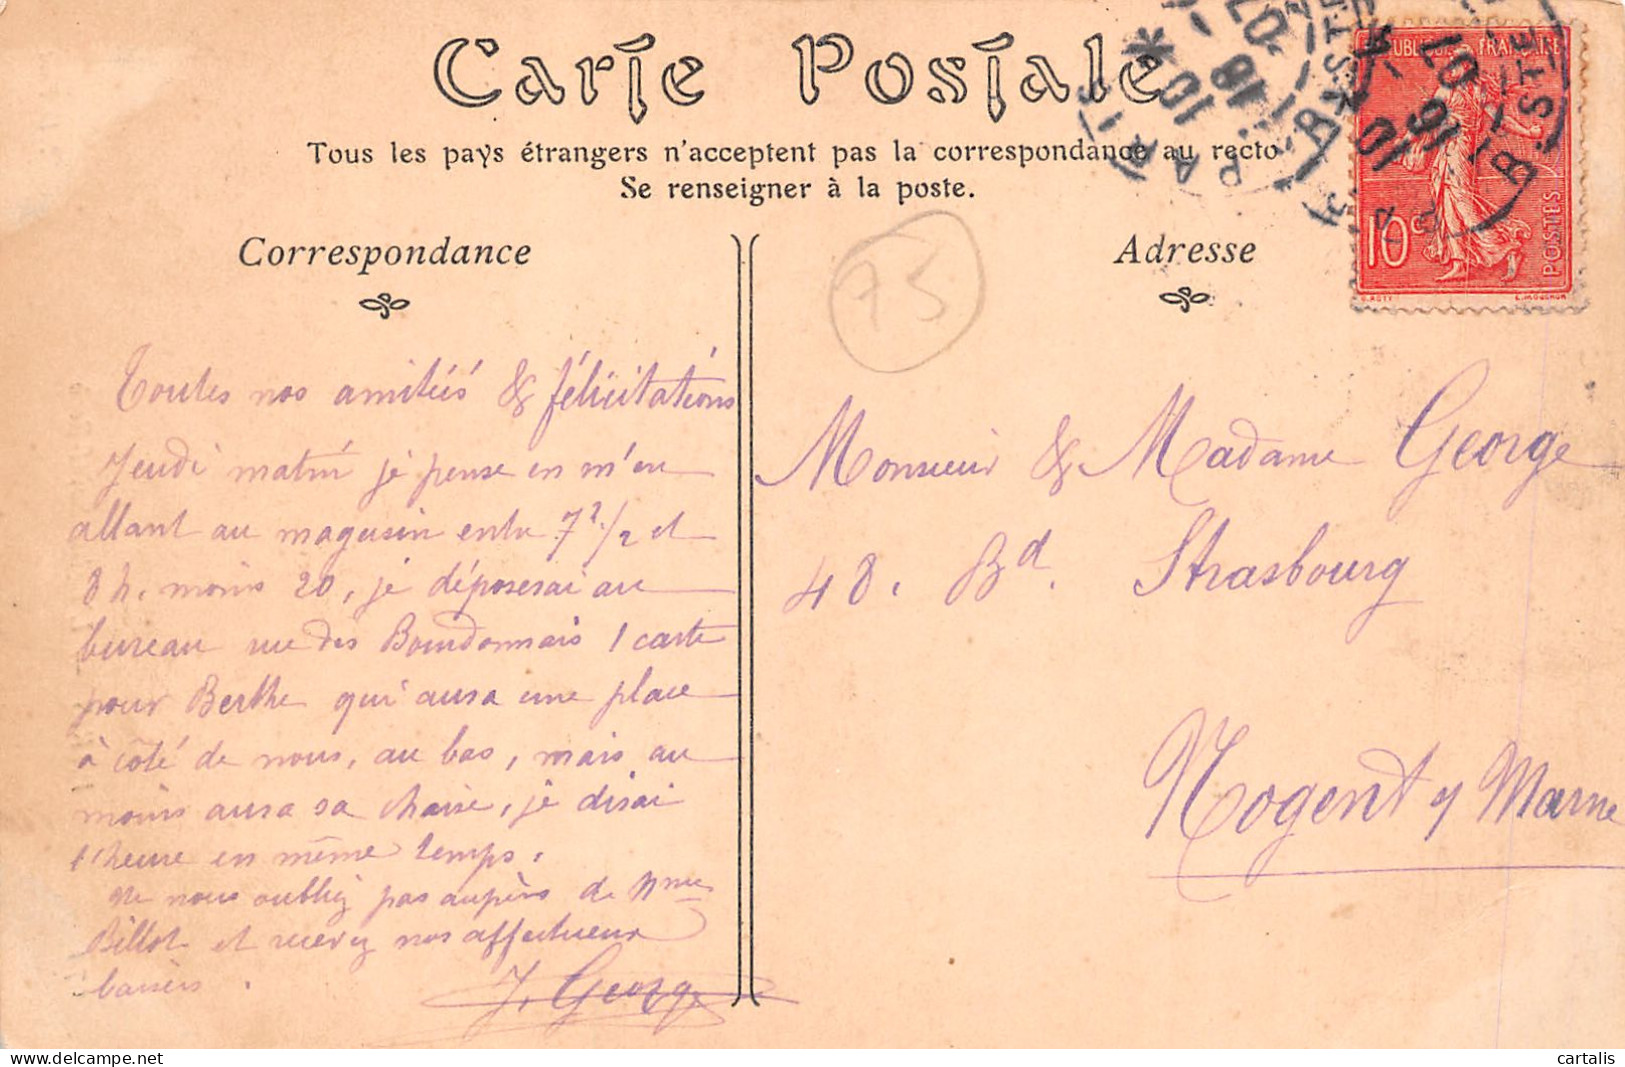 Carte Postale
Tous les pays étrangers n'acceptent pas la correspondance au recto
Se renseigner à la poste.
Correspondance
Adresse
75
RÉPUBLIQUE FRANÇAISE
10c
POSTES
O. ROTY
E. MOUCHON
PARIS
10
16
07
Bd. STRA
Toutes nos amitiés & félicitations
Jeudi matin je pense en m'en
allant au magasin entre 7 1/2 et
8 h. moins 20, je déposerai au
bureau rue des Bourdonnais 1 carte
pour Berthe qui aura une place
à côté de nous, au bas, mais au
moins aura sa chaise, je dirai
l'heure en même temps.
Ne nous oubliez pas auprès de Mme
Billot et recevez nos affectueux
baisers.
J. George
Monsieur & Madame George
48. Bd. Strasbourg
Nogent s/ Marne
cartalis